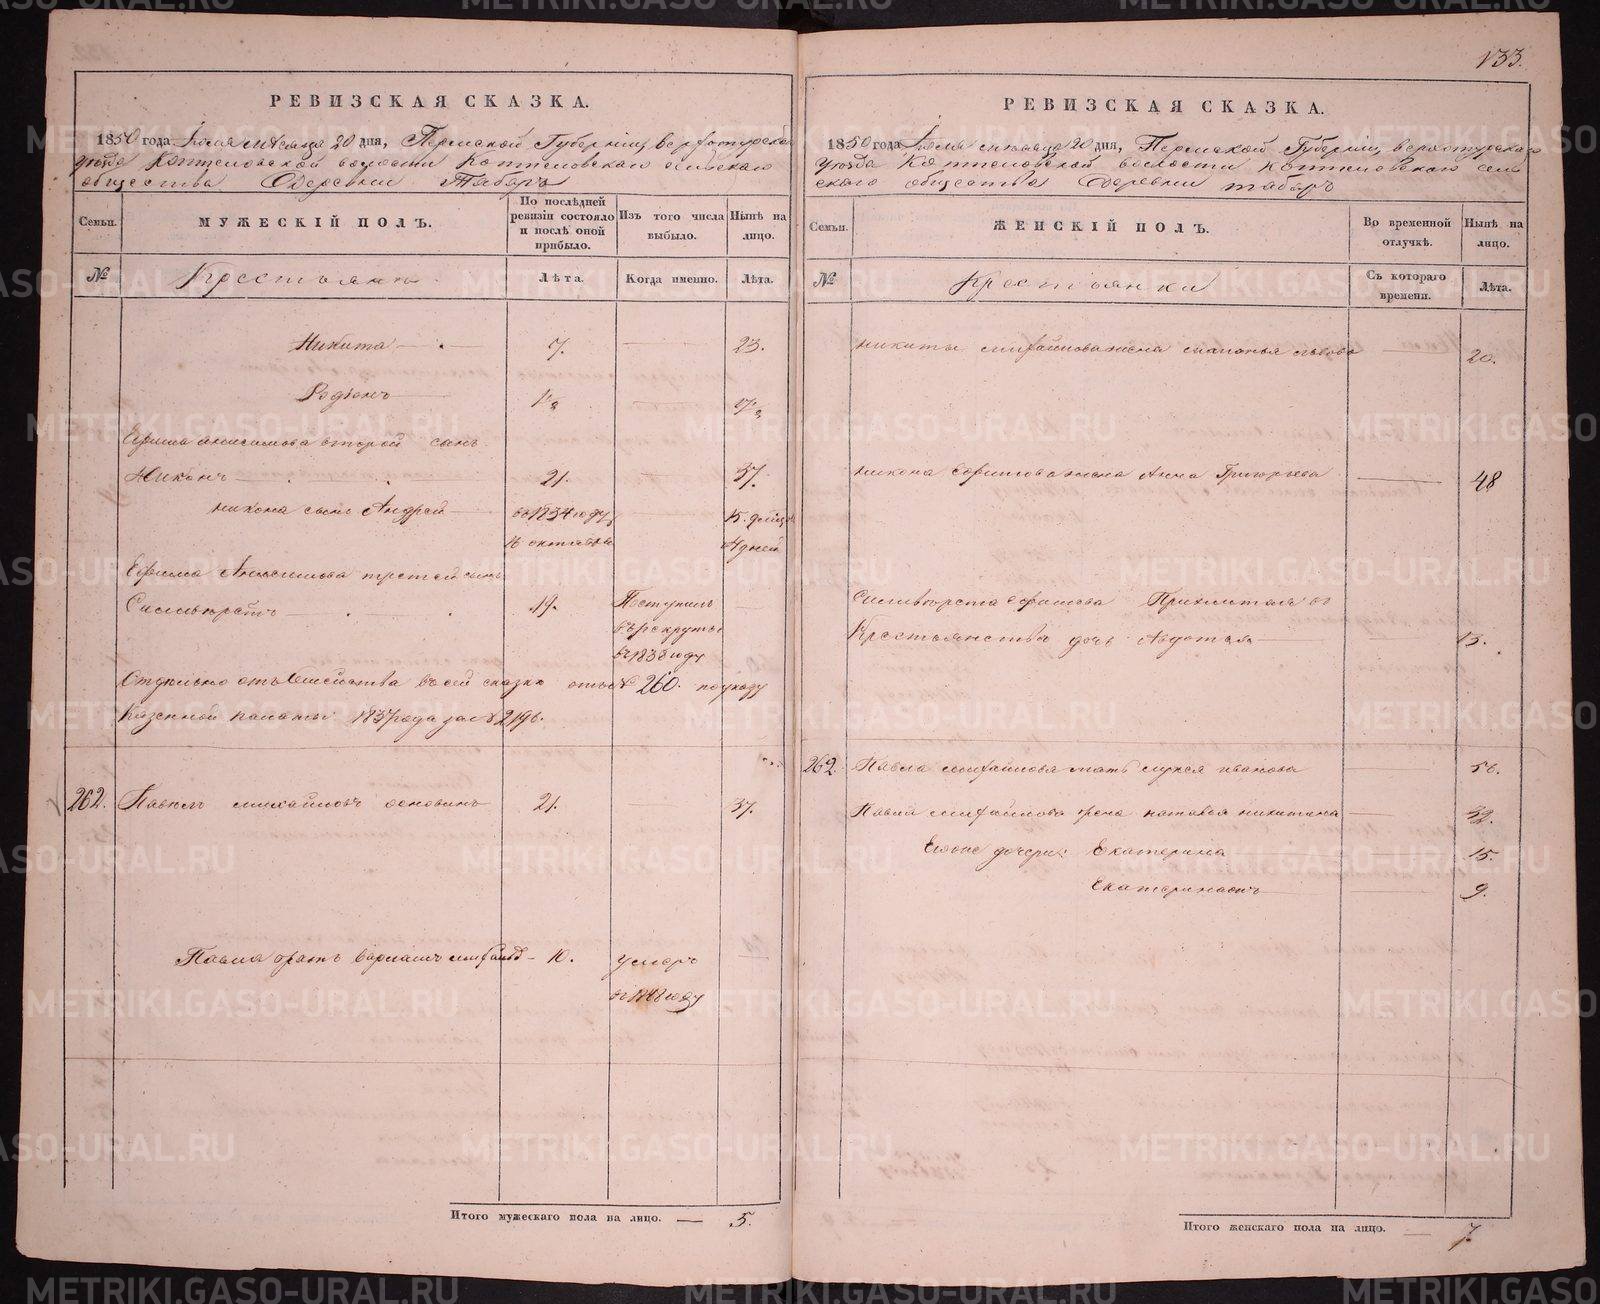 133.
РЕВИЗСКАЯ СКАЗКА.
1850 года Июля месяца 20 дня, Пермской Губернии, верхотурскаго
уезда Коптеловской волости Коптеловскаго сельскаго
общества Деревни Таборъ
Семьи.
МУЖЕСКІЙ ПОЛЪ.
По послѣдней ревизіи состояло и послѣ оной прибыло.
Изъ того числа выбыло.
Нынѣ на лицо.
№
Крестьяне
Лѣта.
Когда именно.
Лѣта.
Никита 7. 23.
Родіонъ 1½ 17½
Ефима анисимова второй сынъ
Никонъ 21. 37.
никона сынъ Андрей въ 1834 году 15.
16 октября дней
Ефима Анисимова третей сынъ
Сильверстъ 19. Поступилъ
въ рекруты
въ 1838 году
Отдельно отъ семейства въ сей сказке отъ № 260. по указу
Казенной палаты 1837 года за № 2196.
262. Павелъ михайловъ основинъ 21. 37.
Павла братъ варламъ 10. умеръ
въ 1848 году
Итого мужескаго пола на лицо. — 5.
РЕВИЗСКАЯ СКАЗКА.
1850 года Июля месяца 20 дня, Пермской Губернии, верхотурскаго
Уезда Коптеловской волости Коптеловскаго сель
скаго общества Деревни таборъ
Семьи.
ЖЕНСКІЙ ПОЛЪ.
Во временной отлучкѣ.
Нынѣ на лицо.
№
Крестьянки
Съ котораго времени.
Лѣта.
никиты михайлова жена маланья львова 20.
никона Ефимова жена Анна Григорьева 48
Сильверста Ефимова Прижитая въ
Крестьянстве дочь Авдотья 13.
262. Павла михайлова мать иванова 56.
Павла михайлова жена наталья никитина 32.
Ево же дочери: Екатерина 15.
9.
Итого женскаго пола на лицо. — 7.
METRIKI.GASO-URAL.RU